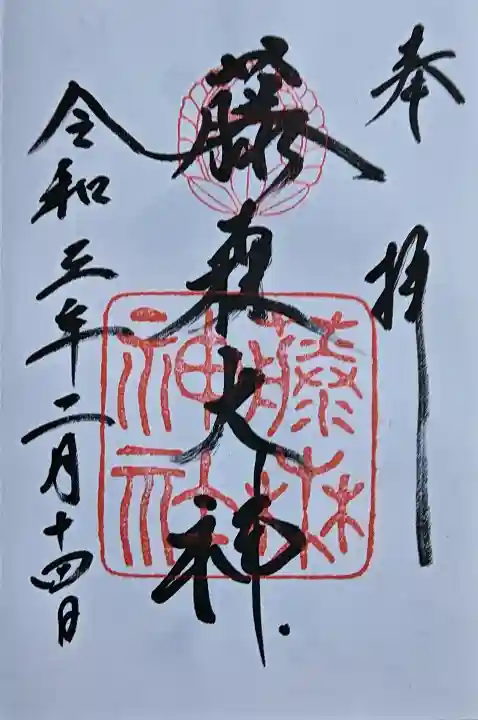 奉拝
藤森大神
藤森神社
令和三年二月十四日